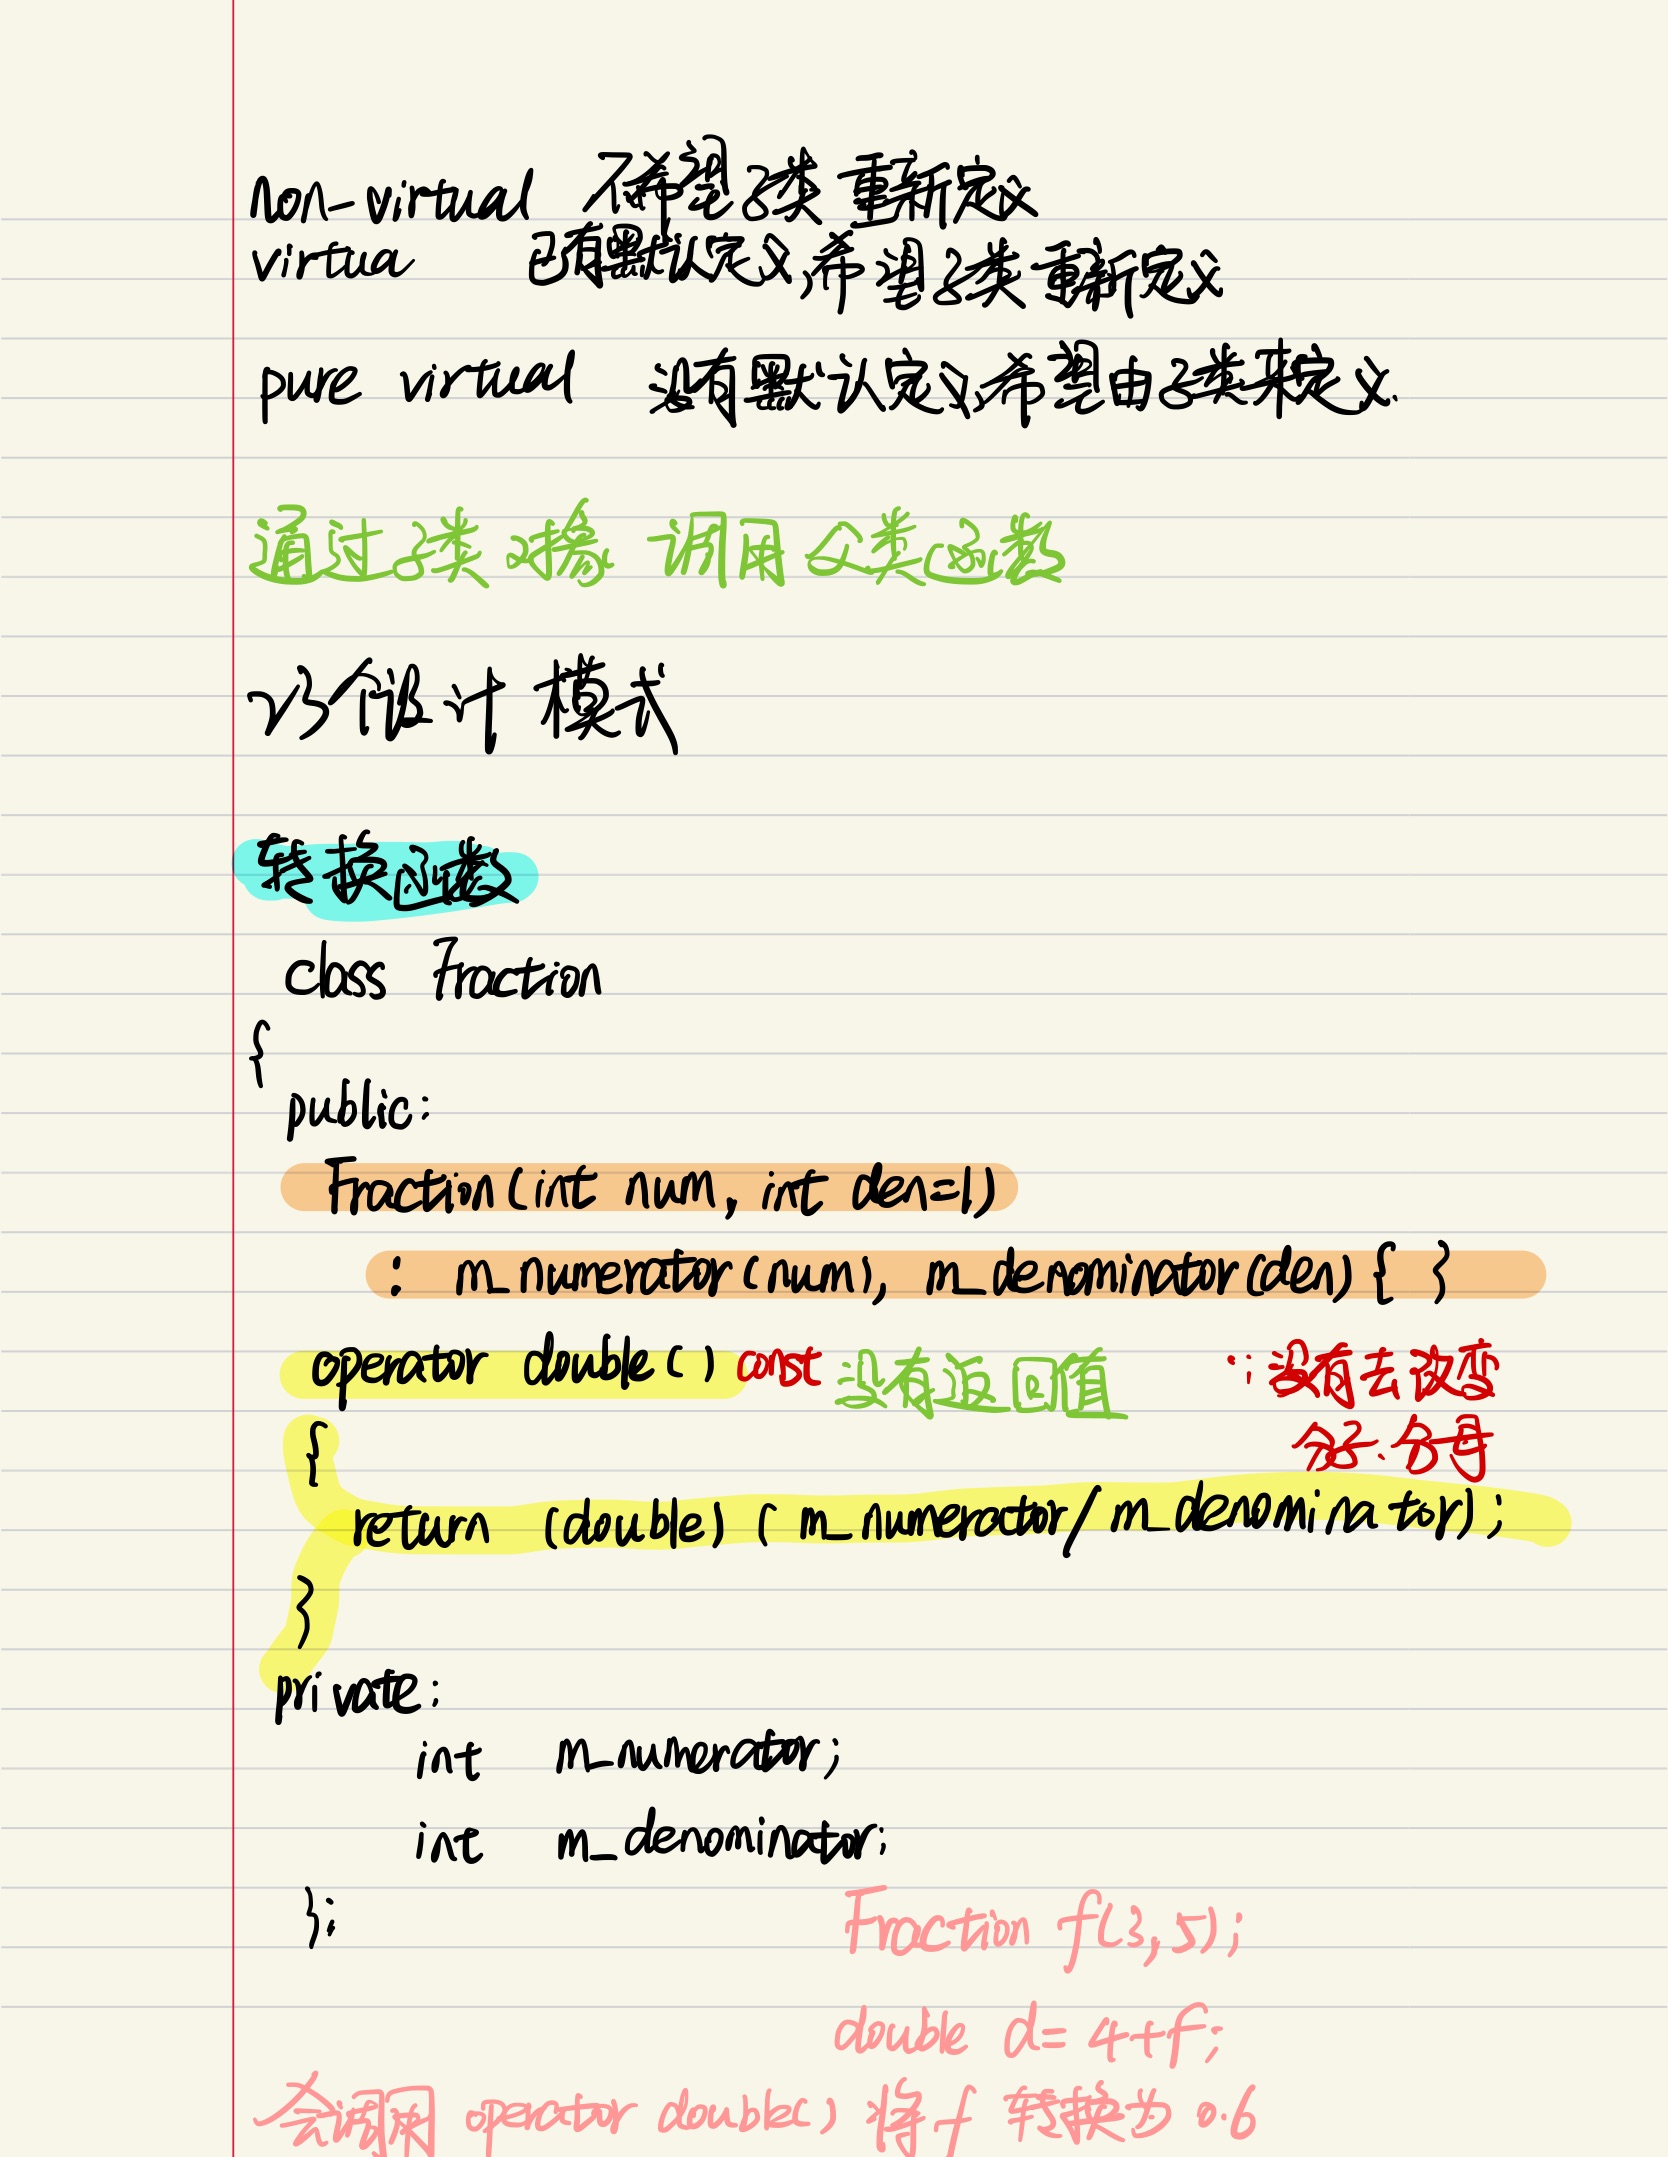 non-virtual 不希望子类重新定义
virtua 已有默认定义,希望子类重新定义
pure virtual 没有默认定义,希望由子类来定义.
通过子类对象 调用父类函数
23个设计模式
转换函数
class Fraction
{
public:
Fraction(int num, int den=1)
: m_numerator(num), m_denominator(den) { }
operator double() const 没有返回值 ∵没有去改变
分子、分母
{
return (double) (m_numerator/m_denominator);
}
private:
int m_numerator;
int m_denominator;
};
Fraction f(3,5);
double d= 4+f;
会调用 operator double() 将f 转换为 0.6